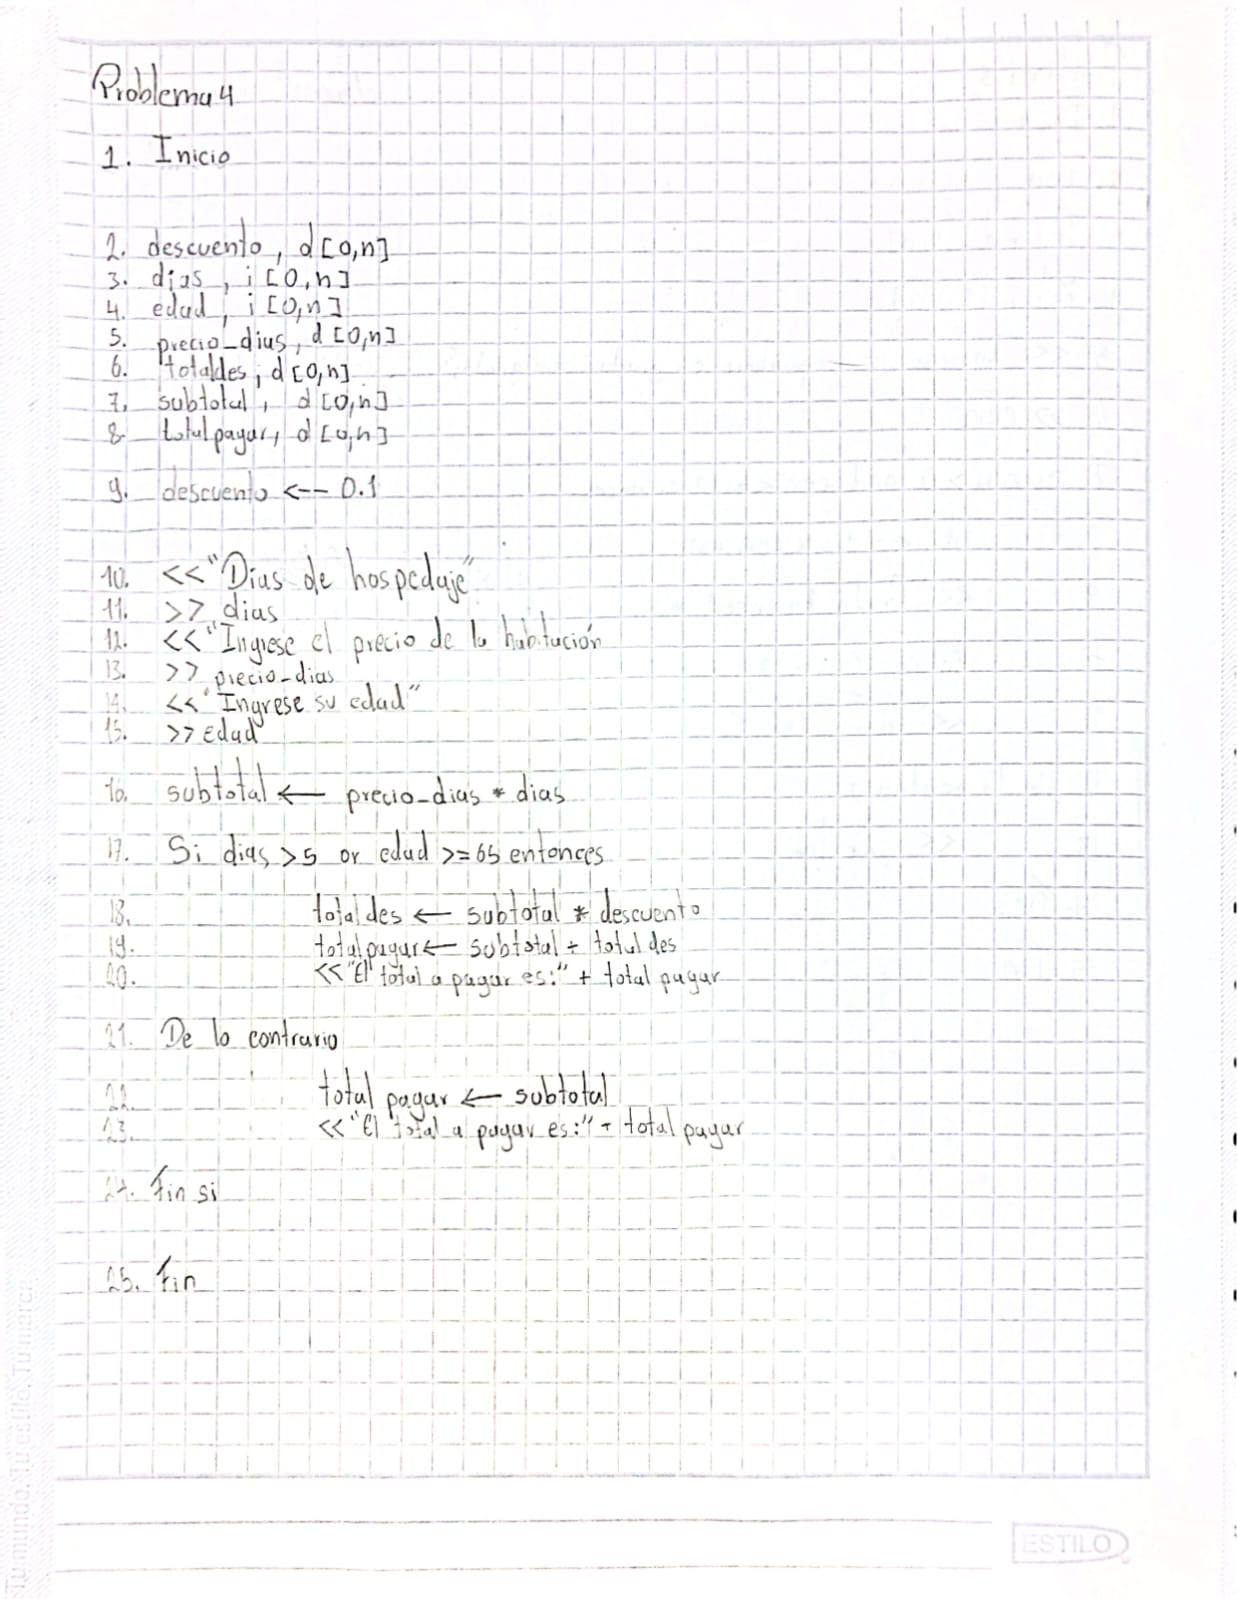 Problema 4
1. Inicio
2. descuento, d [0,n]
3. dias, i [0,n]
4. edad, i [0,n]
5. precio_dias, d [0,n]
6. totaldes, d [0,n]
7. subtotal, d [0,n]
8. totalpagar, d [0,n]
9. descuento <-- 0.1
10. <<"Dias de hospedaje"
11. >> dias
12. <<"Ingrese el precio de la habitación
13. >> precio-dias
14. <<"Ingrese su edad"
15. >> Edad
16. subtotal ← precio-dias * dias
17. Si dias >5 or edad >=65 entonces
18. total des ← subtotal * descuento
19. totalpagar ← subtotal + total des
20. <<"El total a pagar es:" + total pagar
21. De lo contrario
22. total pagar ← subtotal
23. <<"El total a pagar es:" + total pagar
24. Fin si
25. Fin
Tu mundo, Tu estilo, Tu marca
ESTILO